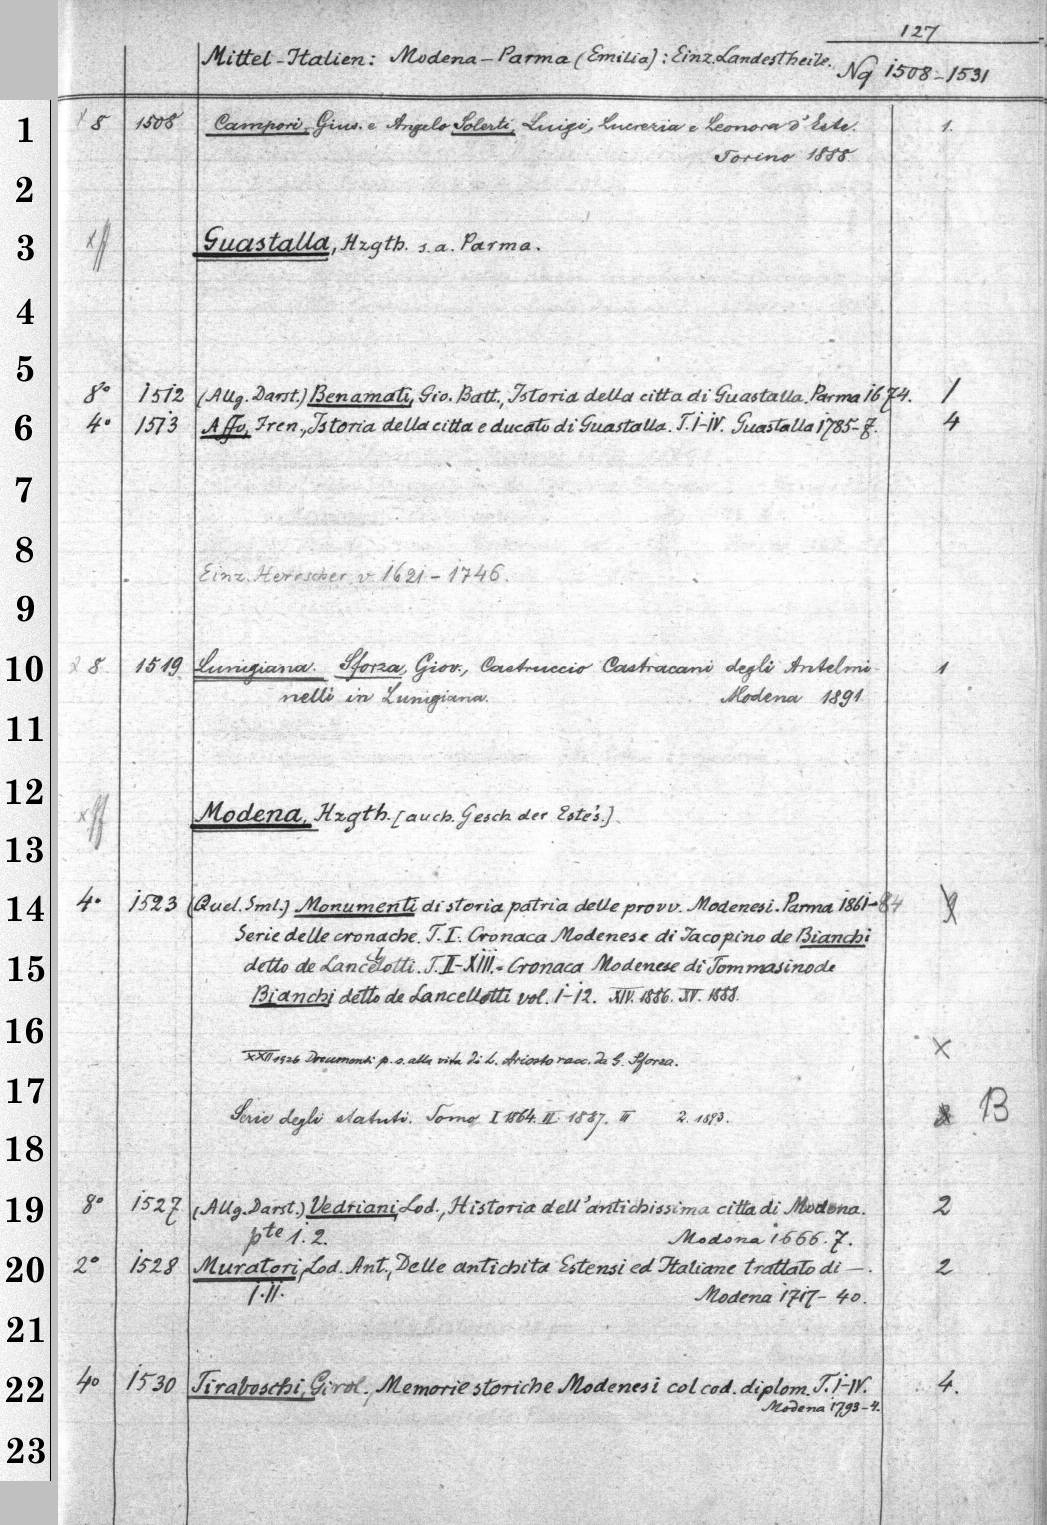 127
Mittel-Italien: Modena-Parma (Emilia): Einz. Landestheile. Nq 1508-1531
1 8 1508 Campori, Gius. e Angelo Solerti, Luigi, Lucrezia e Leonora d'Este. 1.
Torino 1888.
2
3 Guastalla, Hzgth. s. a. Parma.
4
5
8° 1512 (Allg. Darst.) Benamati, Gio. Batt., Istoria della citta di Guastalla. Parma 1674. 1
6 4° 1513 Affo, Iren., Istoria della citta e ducato di Guastalla. T. I-IV. Guastalla 1785-7. 4
7
8
Einz. Herrscher v. 1621-1746.
9
10 8 1519 Lunigiana. Sforza, Giov., Castruccio Castracani degli Antelmi- 1
nelli in Lunigiana. Modena 1891
11
12
Modena, Hzgth. [auch. Gesch. der Este's.]
13
14 4° 1523 (Quel. Sml.) Monumenti di storia patria delle provv. Modenesi. Parma 1861-84
Serie delle cronache. T. I. Cronaca Modenese di Jacopino de Bianchi
15 detto de Lancellotti. T. II-XIII. = Cronaca Modenese di Tommasino de
Bianchi detto de Lancellotti vol. 1-12. XIV. 1886. XV. 1888.
16
XXII 1926 Documenti p. s. alla vita di L. Ariosto racc. da G. Sforza. x
17
Serie degli statuti. Tomo I 1864. II 1887. III 2. 1893. B
18
19 8° 1527 (Allg. Darst.) Vedriani, Lod., Historia dell'antichissima citta di Modena. 2
pte 1. 2. Modona 1666. 7.
20 2° 1528 Muratori, Lod. Ant., Delle antichita Estensi ed Italiane trattato di —. 2
I. II. Modena 1717-40.
21
22 4° 1530 Tiraboschi, Girol., Memorie storiche Modenesi col cod. diplom. T. I-IV. 4.
Modena 1793-4.
23